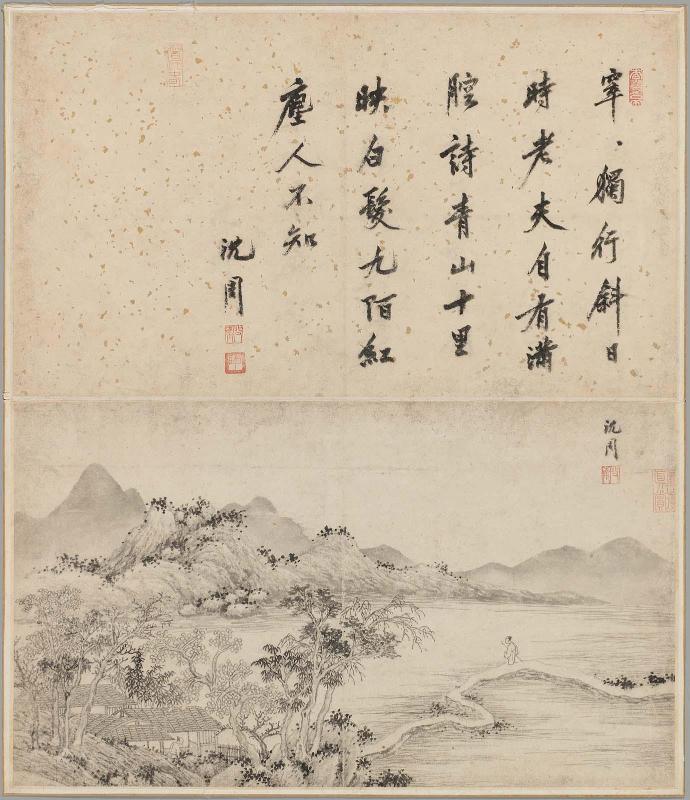 窣、獨行斜日
時老夫自有滿
腔詩青山十里
映白髮九陌紅
塵人不知
沈周
沈周